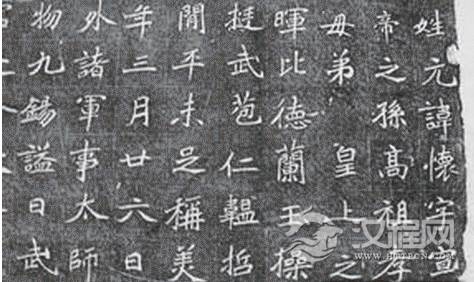 姓元諱懷字宣
帝之孫高祖孝
母弟 皇上之
暉比德蘭玉操
挺武苞仁韞哲
閒平未足稱美
年三月廿六日
外諸軍事太師
物九錫謚曰武
汉程网
HTTPCN.COM